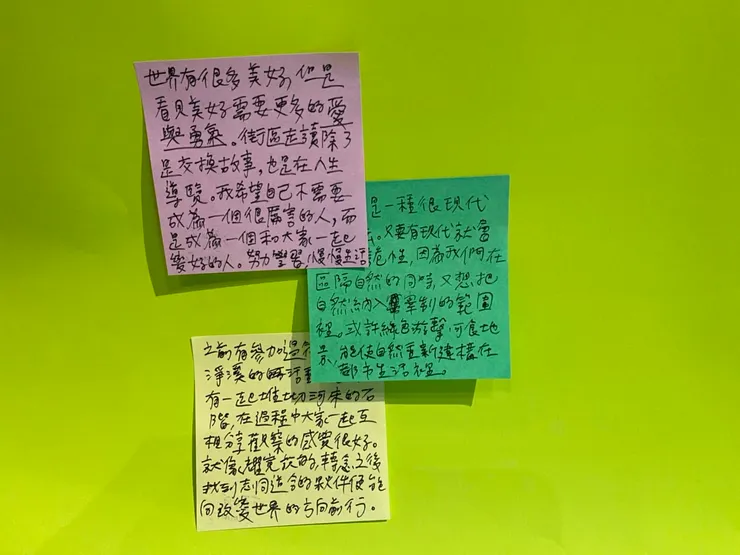 世界有很多美好,但是
看見美好需要更多的愛
與勇氣。街區走讀除了
是交換故事,也是在人生
導覽。我希望自己不需要
成為一個很厲害的人,而
是成為一個和大家一起
變好的人。努力學習,慢慢生活
是一種很現代
。只要有現代就當
範性,因為我們在
區隔自然的同時,又想把
自然納入 牽制的範圍
裡。或許綠色游擊、可食地
景,能使自然重新建構在
都市生活裡。
之前有參加過
淨溪的 活
有一起堆砌河床的石
階,在過程中大家一起互
相分享觀察的感覺很好。
就像 說的,轉念之後
找到志同道合的夥伴便能
向改變世界的方向前行。